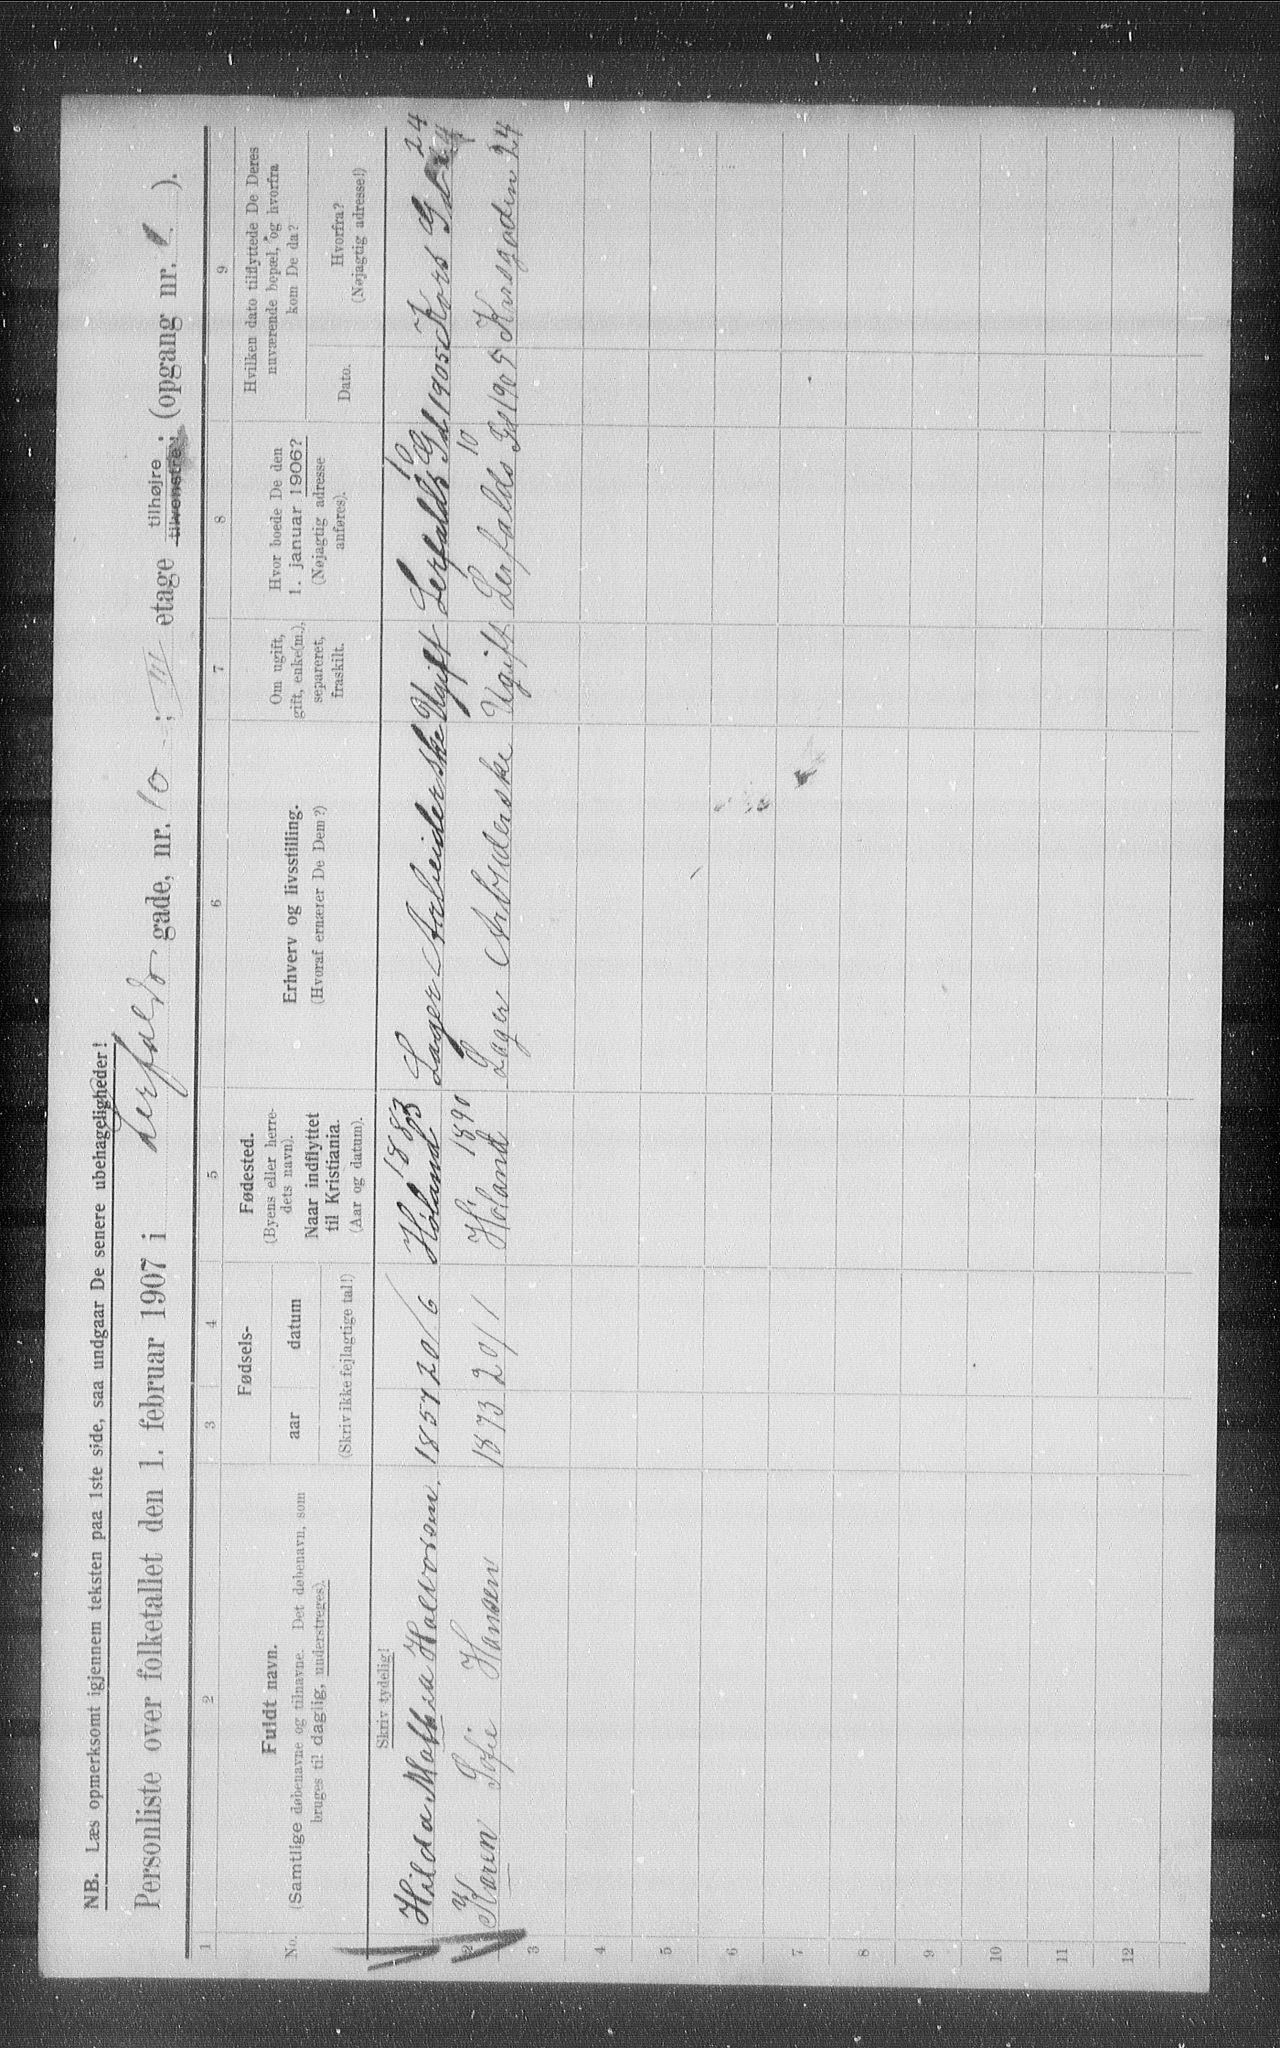 NB. Læs opmerksomt igjennem teksten paa 1ste side, saa undgaar De senere ubehageligheder!
Personliste over folketallet den 1. februar 1907 i Lerfalds gade, nr. 10 ; III etage tilhøjre ; (opgang nr. 1 ).
tilvenstre
1 2 3 4 5 6 7 8 9
No.
Fuldt navn.
(Samtlige døbenavne og tilnavne. Det døbenavn, som
bruges til daglig, understreges).
Fødsels-
aar datum
(Skriv ikke fejlagtige tal!)
Fødested.
(Byens eller herre-
dets navn).
Naar indflyttet
til Kristiania.
(Aar og datum).
Erhverv og livsstilling.
(Hvoraf ernærer De Dem?)
Om ugift,
gift, enke(m.),
separeret,
fraskilt.
Hvor boede De den
1. januar 1906?
(Nøjagtig adresse
anføres).
Hvilken dato tilflyttede De Deres
nuværende bopæl, og hvorfra
kom De da?
Dato.
Hvorfra?
(Nøjagtig adresse!)
Skriv tydelig!
1883 10 24
Hilda Mathea Halvorsen. 1857 20/6 Höland Lager Arbeiderske Ugift Lerfalds Gd 1905 Kors Gd 24
1890 10
2 Karen Sofie Hansen 1873 20/1 Höland Lager Arbiderske Ugift Lerfalds Gd 1905 Korsgaden 24
3
4
5
6
7
8
9
10
11
12